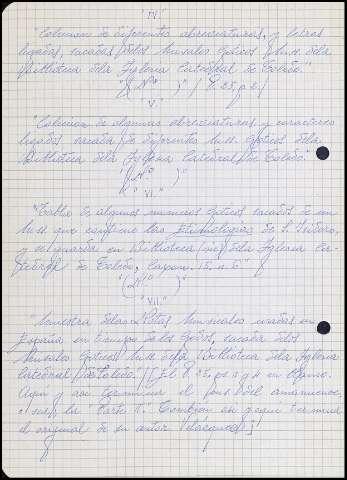 "IV"
"Colección de diferentes abreviaturas, y letras
ligadas, sacadas de los Misales Góticos Mss. de la
Biblioteca de la Iglesia Catedral de Toledo."
"(Nº )" / E. 25, p. 2 /
"V."
"Colección de algunas abreviaturas y caracteres
ligados sacada de diferentes Mss. góticos de la
Biblioteca de la Iglesia Catedral de Toledo."
"(Nº )"
"VI"
"Tabla de algunos números góticos sacados de un
Mss. que contiene las Etimologías de S. Isidoro,
y se guarda en Biblioteca de la Iglesia Ca-
tedral de Toledo, Caxon. 15. n. 6"
"(Nº )"
"VII."
"Muestra de las Notas Musicales usadas en
España en tiempo de los Godos, sacada de los
Misales Góticos Mss. de la Biblioteca de la Iglesia
Catedral de Toledo." [El E 25, p. 3 y 4 en blanco.
Aquí y así termina el
el original de su autor Velázquez]